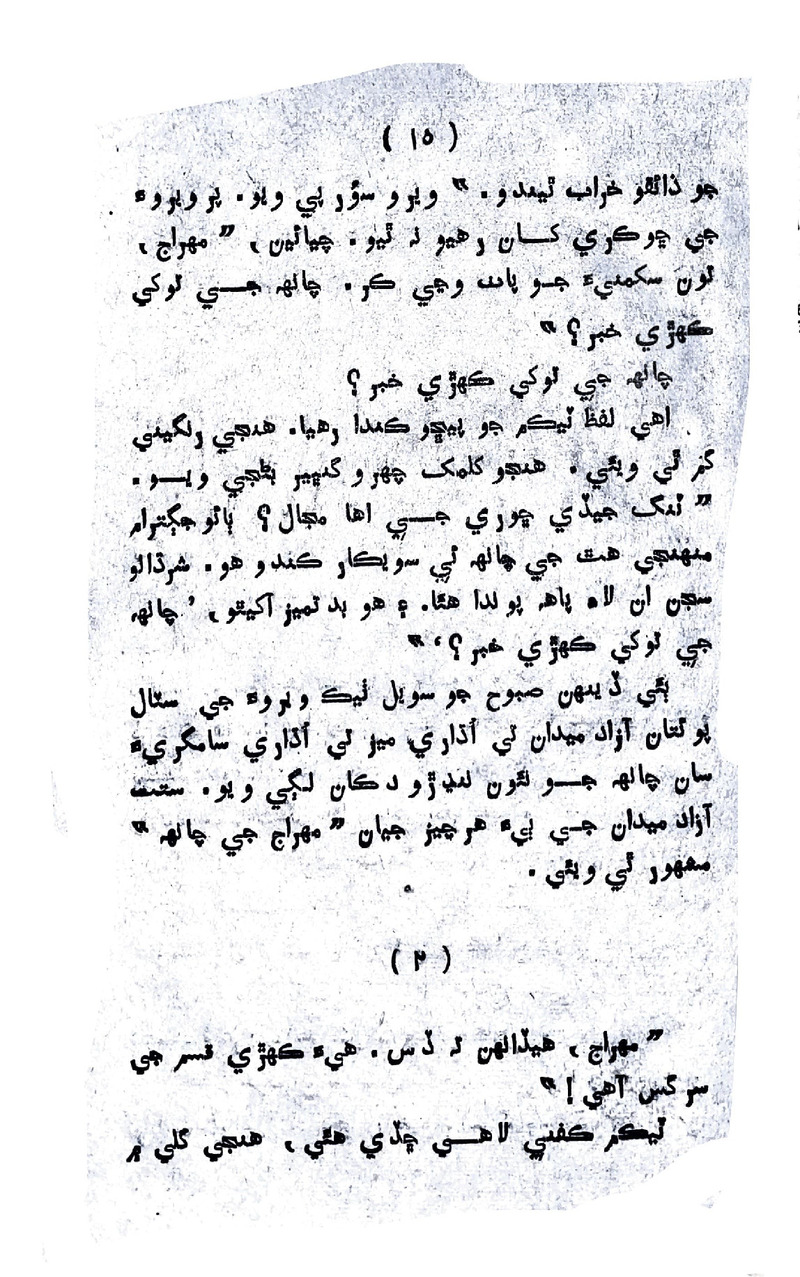 ( ۱۵ )
جو ذائقو خراب ٿيندو. ” ويرو سؤر پي ويو. پر ويروءَ
جي ڇوڪري کــان رهيو نہ ٿيو. چيائين، ” مهراج،
تون سکمنيءَ جــو پاٺ وڃي ڪر. چانهہ جــي توکي
ڪهڙي خبر؟ “
چانهہ جي توکي ڪهڙي خبر؟
اهي لفظ ٽيڪم جو پيڇو ڪندا رهيا. هنجي رنگيني
گم ٿي ويئي. هنجو کلمک چهرو گنڀير بڻجي ويــو.
” ٽنگ جيڏي ڇوري جــي اها مجال؟ ڀائو جڳترام
منهنجي هٿ جي چانهہ ئي سويڪار ڪندو هو. شرڌالو
سڄن ان لاءِ پاهہ پوندا هئا. ۽ هو بد تميز آکيتو، ’ چانهہ
جي توکي ڪهڙي خبر؟‘ “
ٻئي ڏينهن صبوح جو سويل ٺيڪ ويروءَ جي سٽال
پوئتان آزاد ميدان تي اُڌاري ميز تي اُڌاري سامگريءَ
سان چانهہ جــو نئون ننڍڙو دڪان لڳي ويو. ستت
آزاد ميدان جــي ٻيءَ هر چيز جيان ” مهراج جي چانهہ “
مشهور ٿي ويئي.
( ۲ )
” مهراج، هيڏانهن تہ ڏس. هيءَ ڪهڙي قسم جي
سرگس آهي! “
ٽيڪم ڪفني لاهــي ڇڏي هئي، هنجي ڳلي ۾